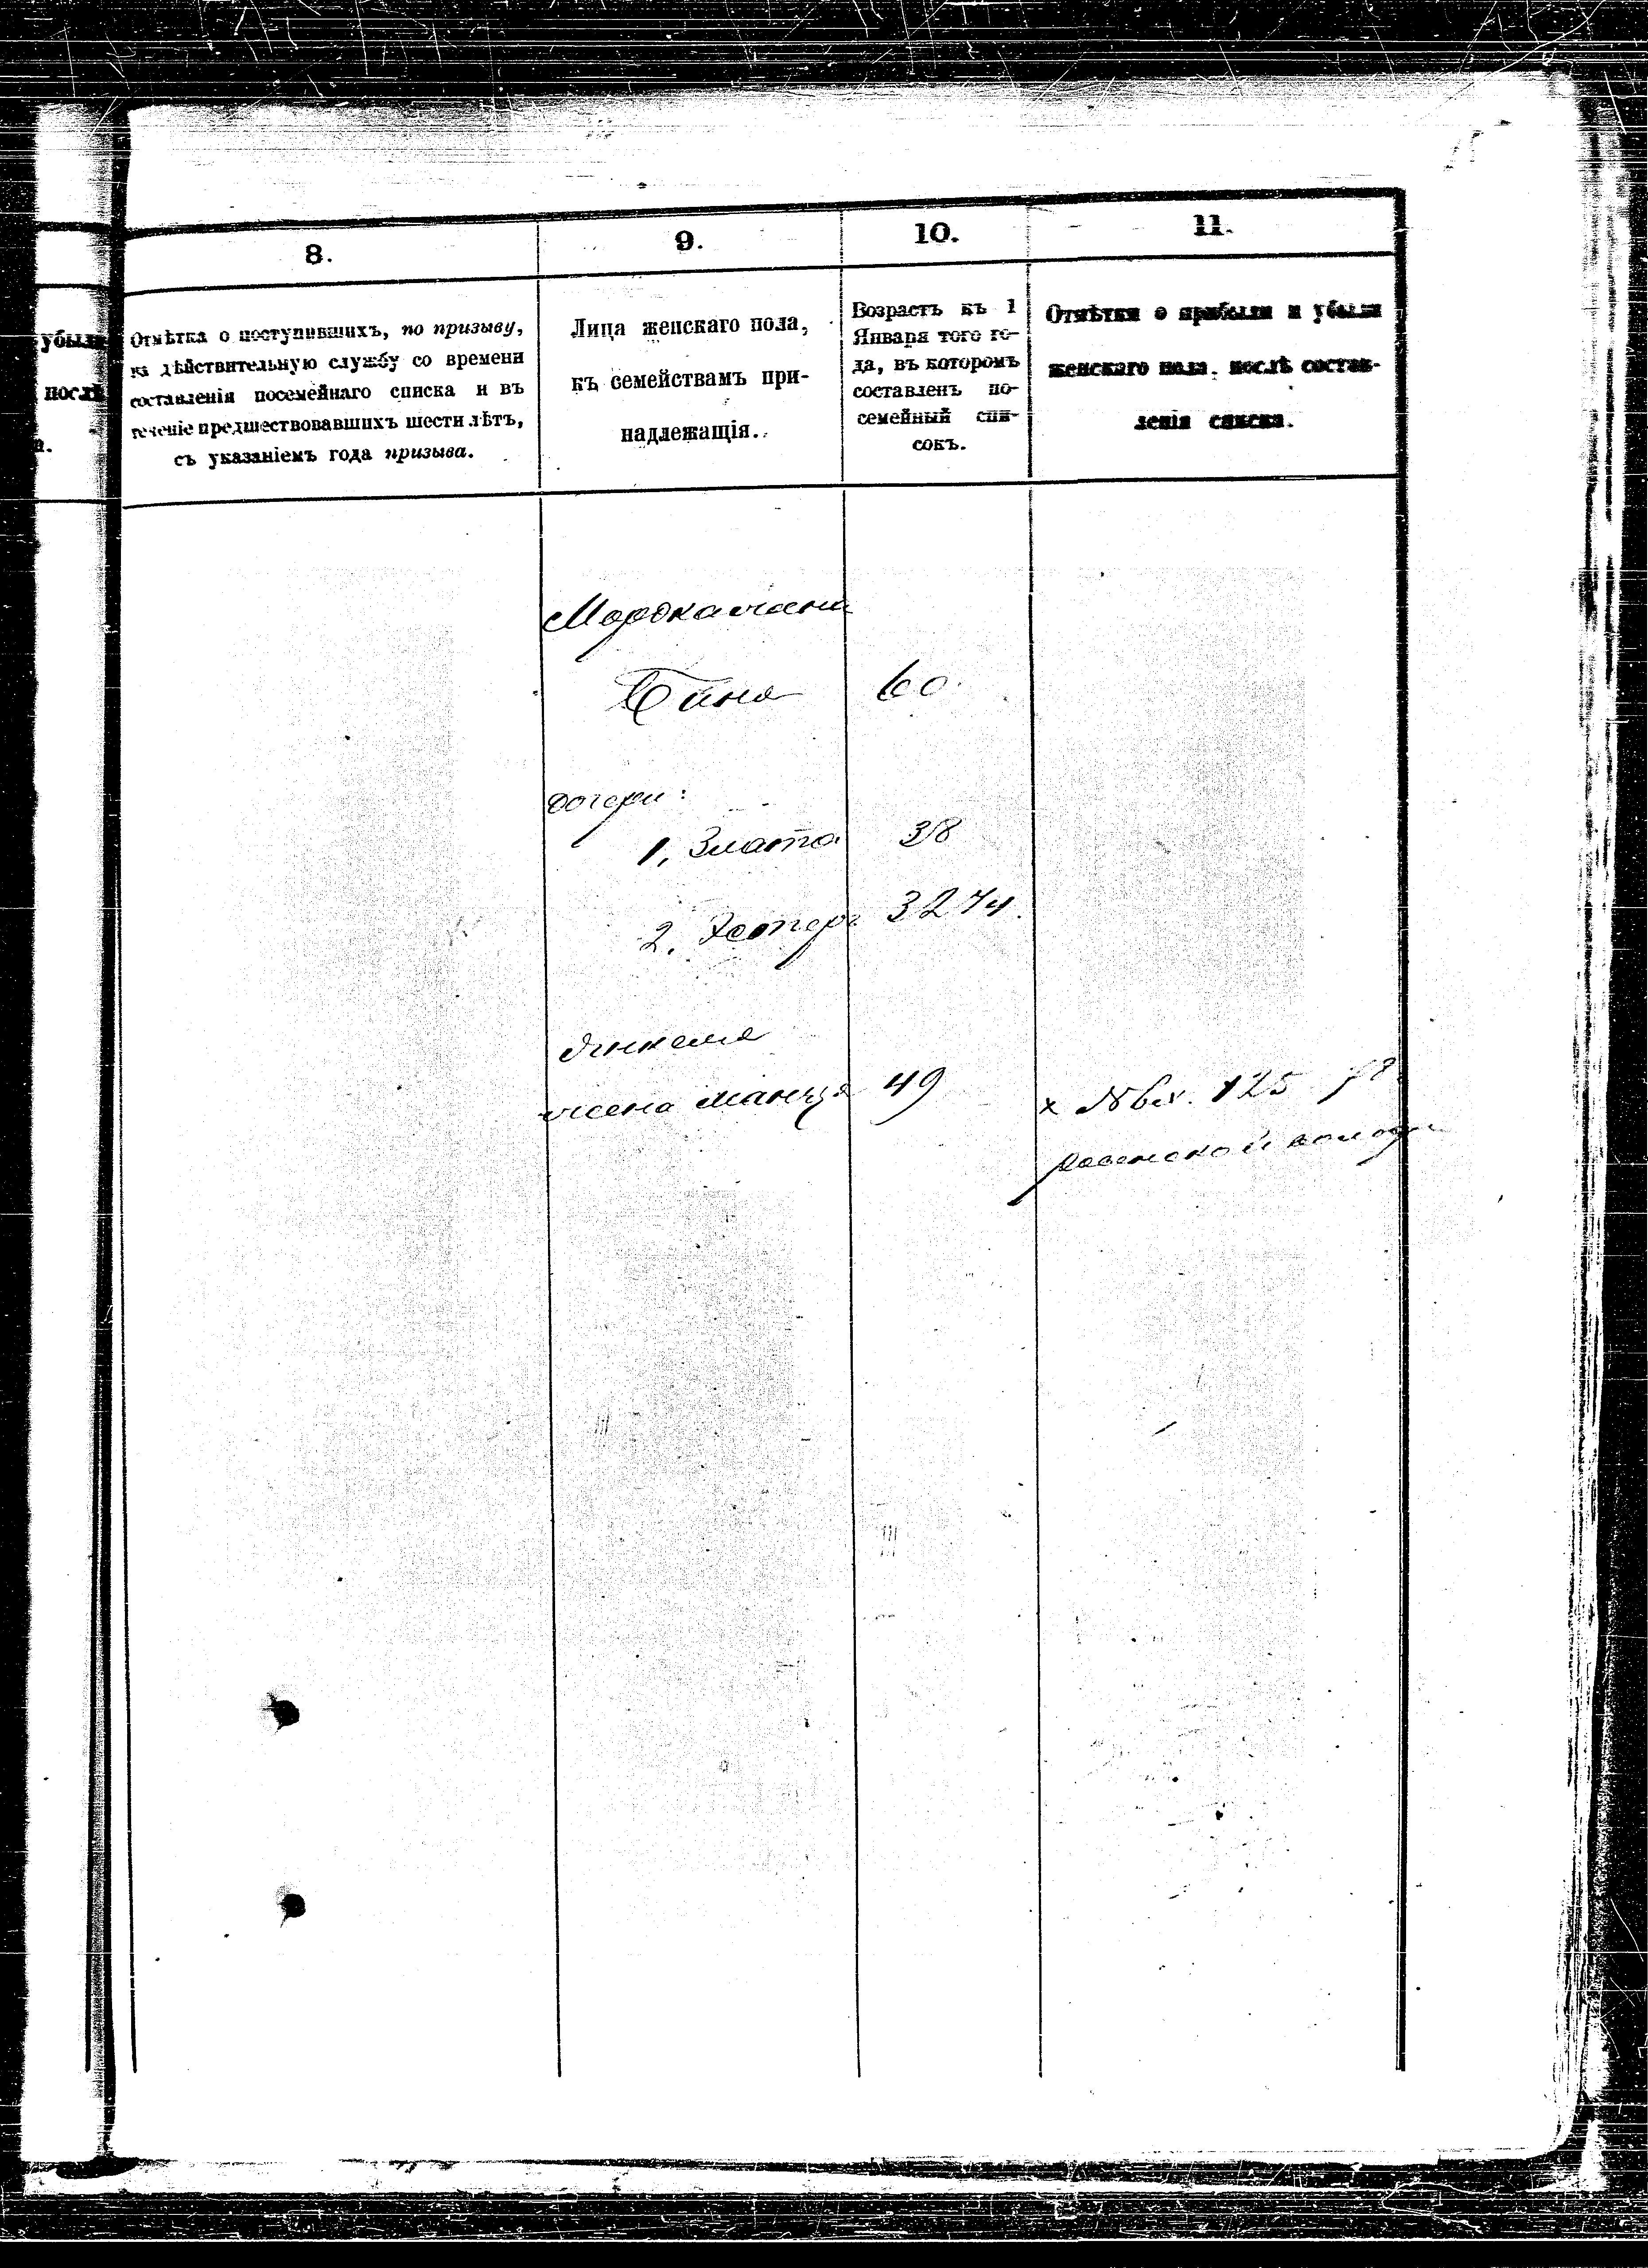 8.
9.
10.
11.
убыли
послѣ
а.
Отмѣтка о поступившихъ, по призыву,
въ дѣйствительную службу со времени
составленія посемейнаго списка и въ
теченіе предшествовавшихъ шести лѣтъ,
съ указаніемъ года призыва.
Лица женскаго пола,
къ семействамъ при-
надлежащія.
Возрастъ къ 1
Января того го-
да, въ которомъ
составленъ по-
семейный спи-
сокъ.
Отмѣтки о прибыли и убыли
женскаго пола послѣ состав-
ленія списка.
Мордка жена
Бина 60
дочери:
1. Злата 38
2. Эстеръ 32
Янкеля
жена 49
x 125